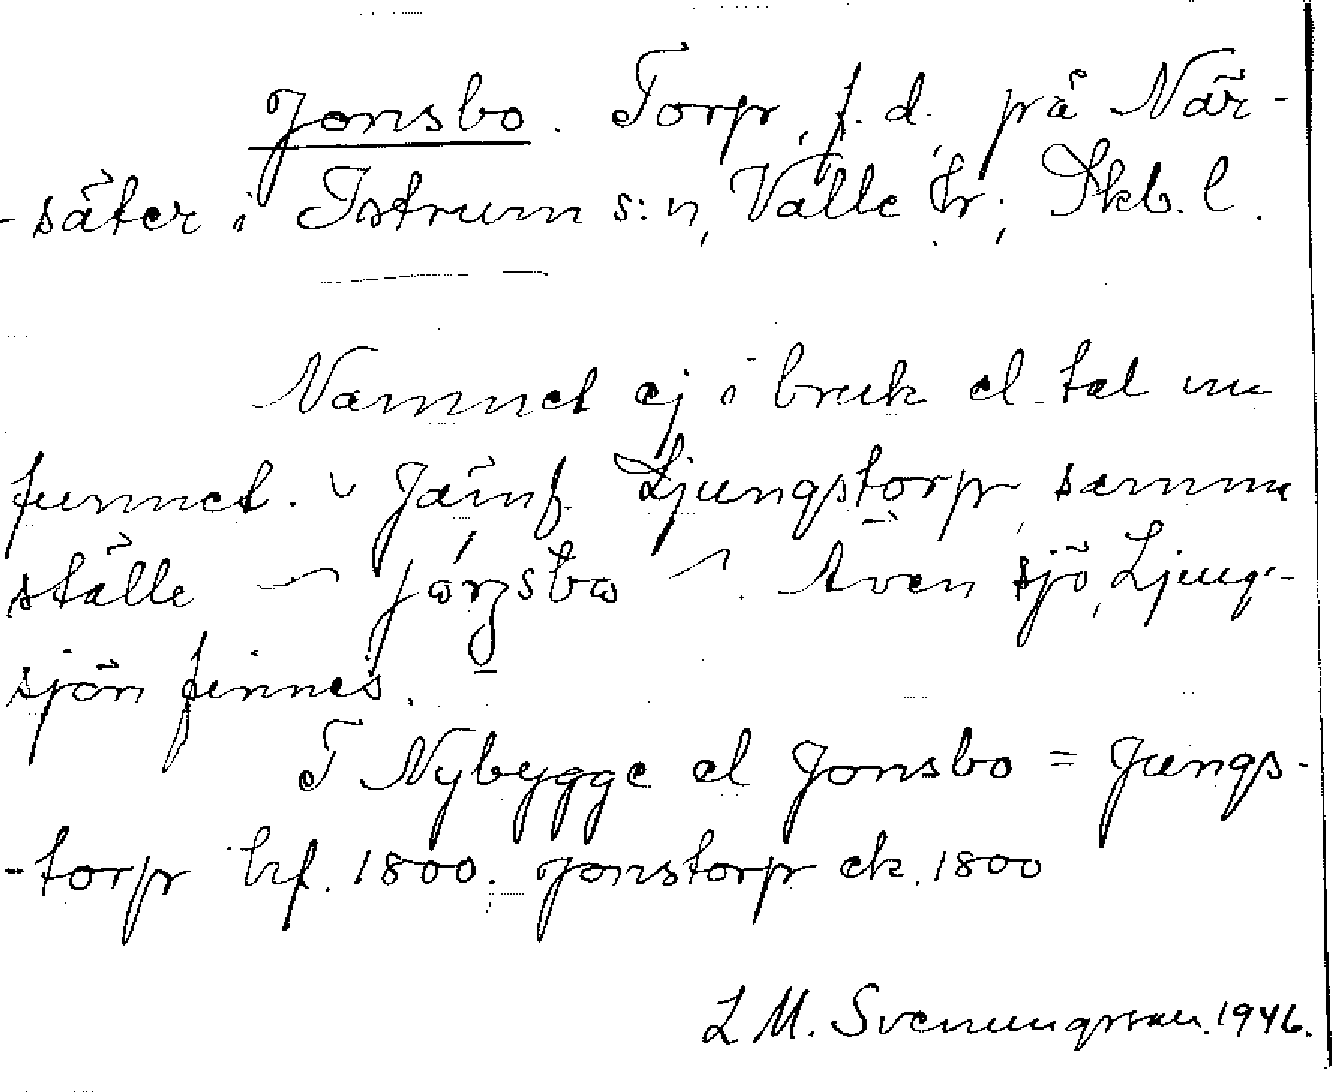 Jonsbo. Torp, f. d., på När-
-säter i Istrum s:n, Valle hr; Skb. l.
Namnet ej i bruk el. tal nu
funnet. Jämf. Ljungstorp, samma
ställe Även sjö, Ljung-
sjön finnes.
T Nybygge el Jonsbo = Jungs-
-torp hf. 1800. Jonstorp ck. 1800
L M. Svenungsson. 1946.